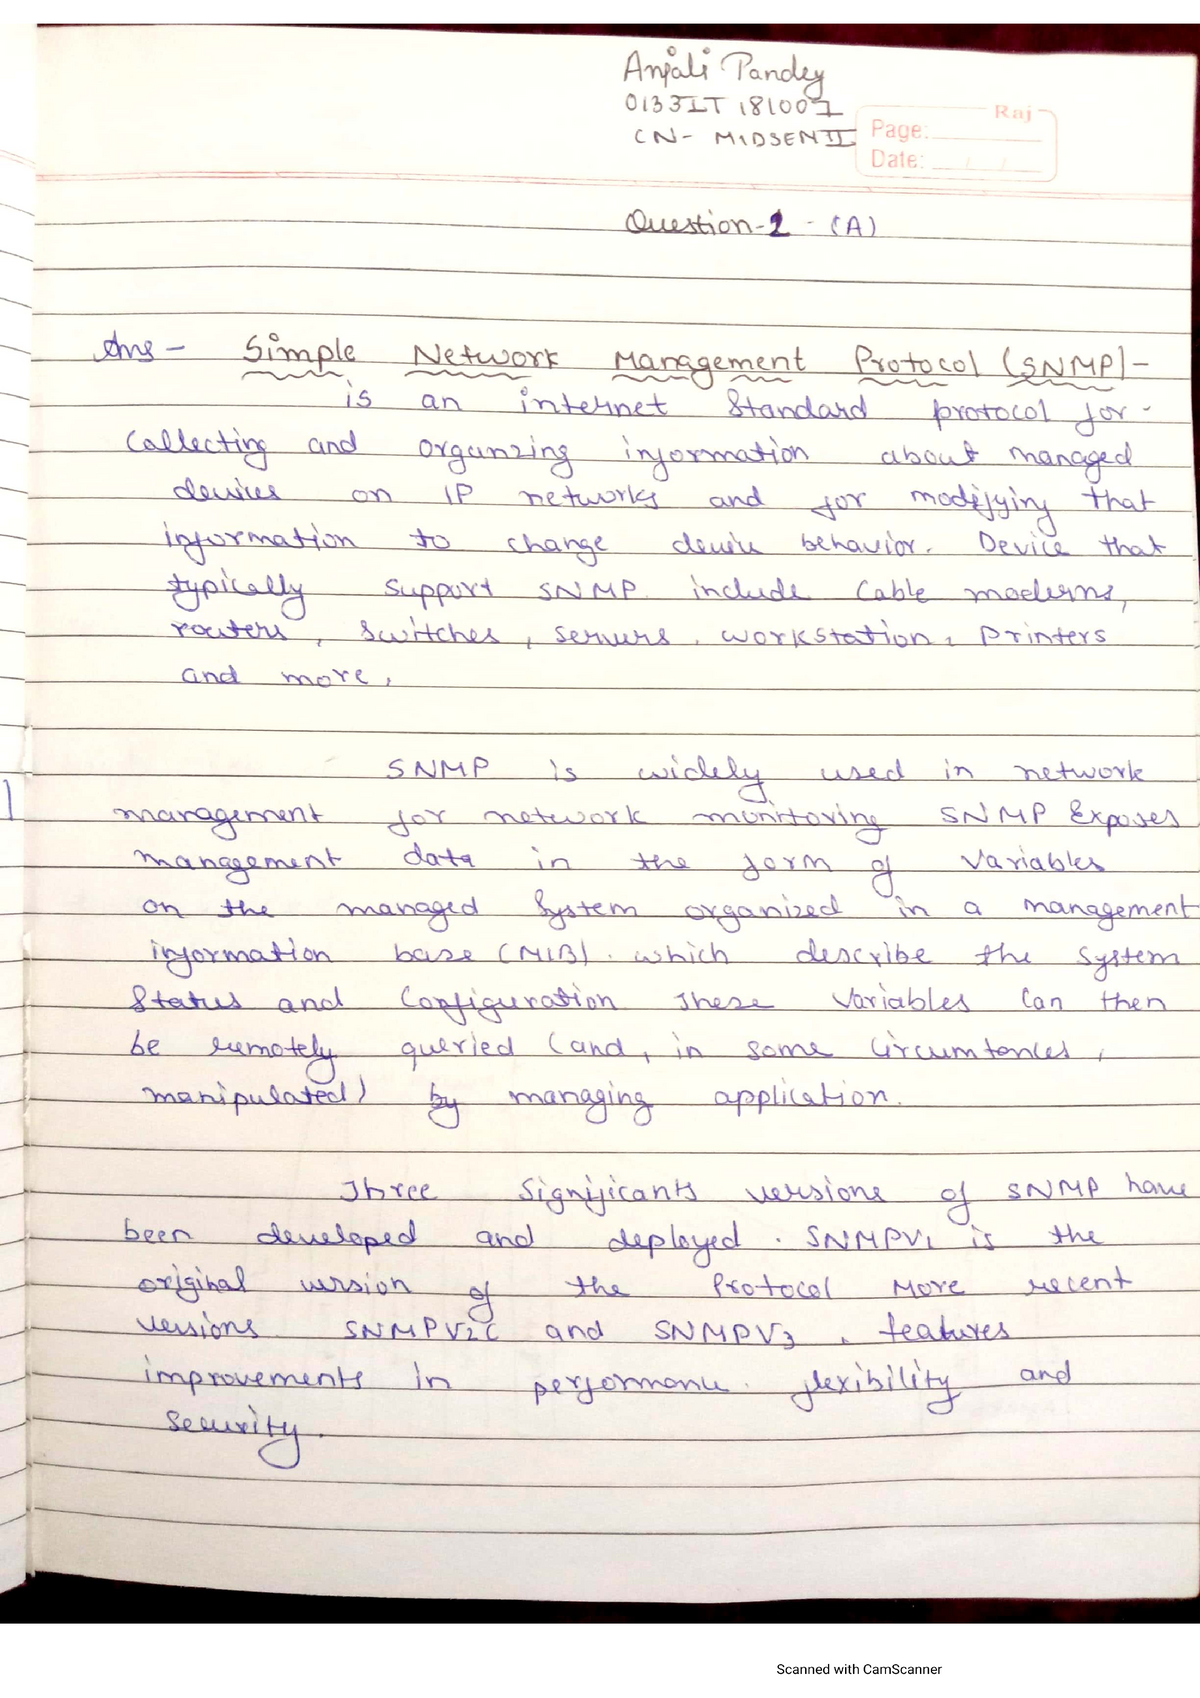 Anjali Pandey
0133IT181007
CN- MIDSEM II
Raj
Page:
Date: / /
Question-1 - (A)
Ans - Simple Network Management Protocol (SNMP)-
is an internet Standard protocol for -
Collecting and organzing information about managed
devices on IP networks and for modifying that
information to change device behavior. Device that
typically support SNMP include Cable moderns,
routers, Switches, servers, workstation, printers
and more,
SNMP is widely used in network
management for network monitoring SNMP Exposes
management data in the form of Variables
on the managed System organized in a management
information base (MIB). which describe the System
Status and Configuration These Variables Can then
be remotely queried (and, in some Circumtences,
manipulated) by managing application.
Three Significants versions of SNMP have
been developed and deployed. SNMPV1 is the
original version of the Protocol More recent
versions SNMPV2C and SNMPV3, features
improvements in performance. flexibility and
Security.
Scanned with CamScanner